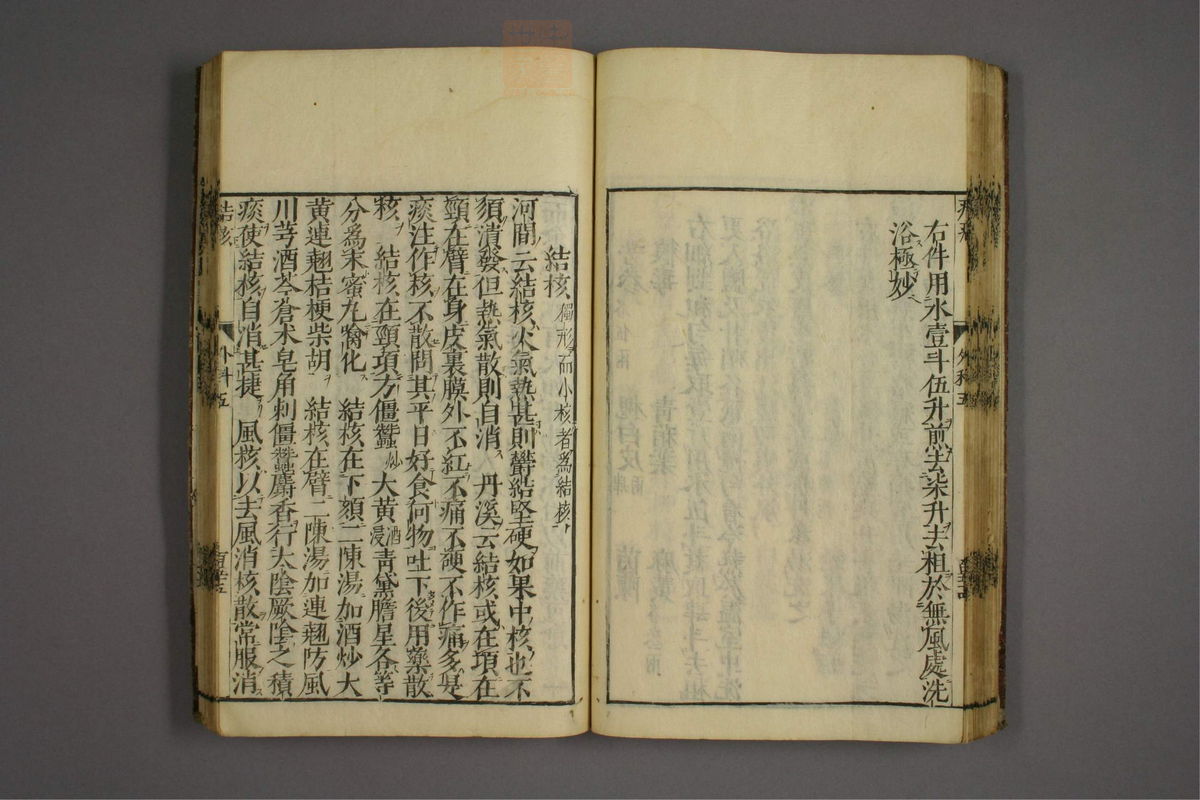 右件用水壹斗伍升煎去柒升去粗於無風處洗
浴極妙
外科五
結核 獨形而小核者爲結核
河間云結核火氣熱甚則欝結堅硬如果中核也不
須潰發但熱氣散則自消 丹溪云結核或在項在
頸在臂在身皮裏膜外不紅不痛不硬不作痛多是
痰注作核不散問其平日好食何物吐下後用藥散
核 結核在頸項方僵蠶炒 大黃酒浸 青黛膽星各等
分爲末蜜丸噙化 結核在下頦二陳湯加酒炒大
黃連翹桔梗柴胡 結核在臂二陳湯加連翹防風
川芎酒芩蒼朮皂角刺僵蠶麝香行太陰厥陰之積
痰使結核自消甚捷 風核以去風消核散常服消
結核 外科五